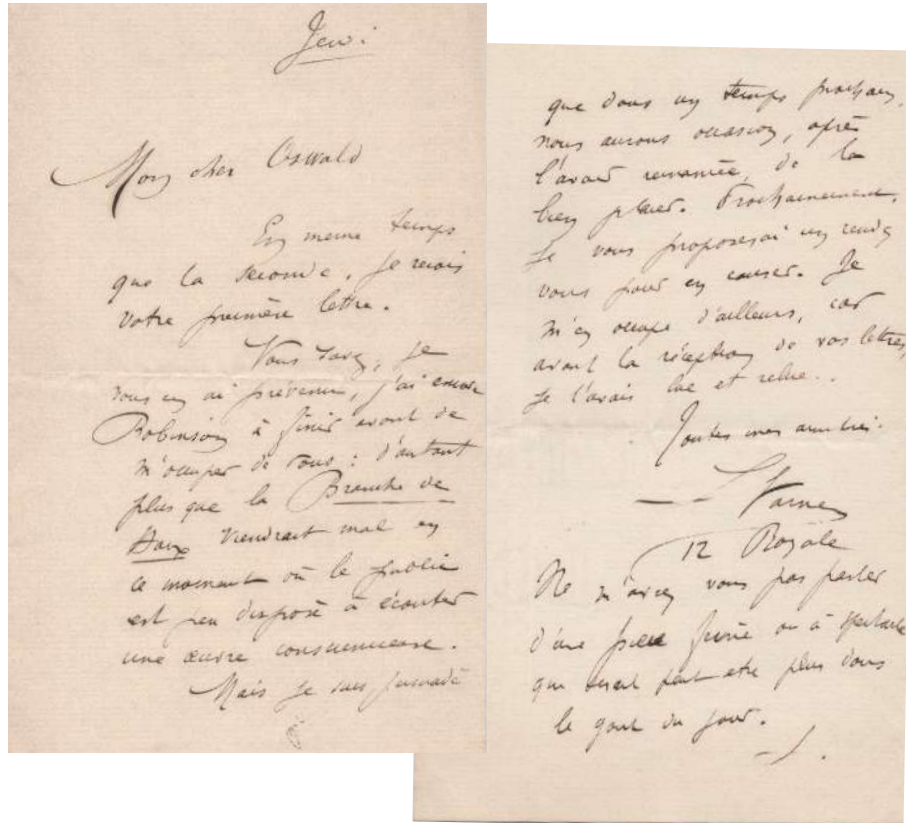 Jeudi
Mon cher Oswald
En meme temps
que la seconde, je reçois
votre première lettre.
Vous savez, je
vous en ai prévenu, j'ai encore
Robinson à finir avant de
m'occuper de vous : d'autant
plus que la Branche de
Houx viendrait mal en
ce moment où le public
est peu disposé à écouter
une œuvre consciencieuse.
Mais je suis persuadé
que dans un temps prochain,
nous aurons occasion, après
l'avoir remaniée, de la
bien placer. Prochainement,
je vous proposerai un rendez
vous pour en causer. Je
m'en occupe d'ailleurs, car
avant la réception de vos lettres,
je l'avais lue et relue..
Toutes mes amitiés.
L Varney
12 Royale
Ne m'avez vous pas parler
d'une pièce féerie ou à spectacle
qui serait peut etre plus dans
le gout du jour.